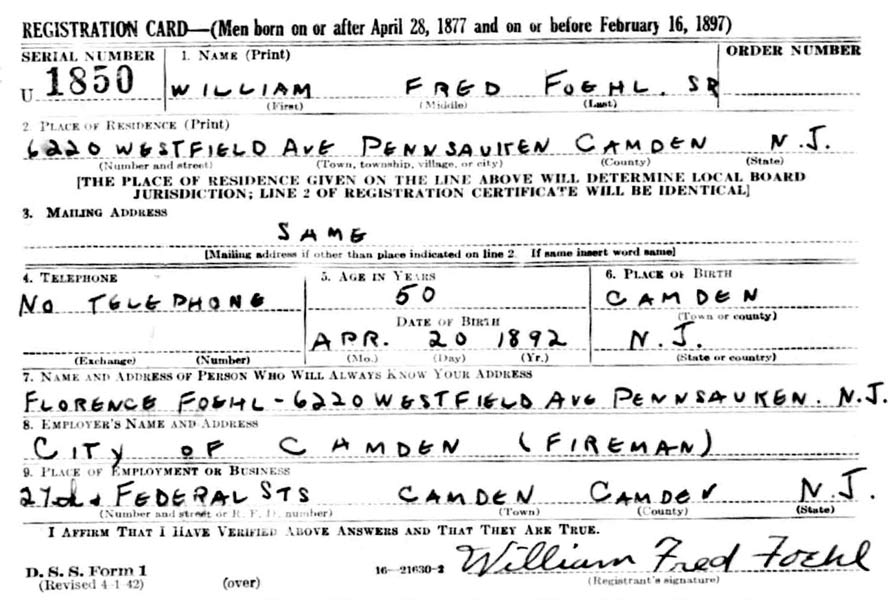 REGISTRATION CARD—(Men born on or after April 28, 1877 and on or before February 16, 1897)
SERIAL NUMBER 1. NAME (Print) ORDER NUMBER
U 1850 WILLIAM FRED FOEHL. SR
(First) (Middle) (Last)
2. PLACE OF RESIDENCE (Print)
6220 WESTFIELD AVE PENNSAUKEN CAMDEN N.J.
(Number and street) (Town, township, village, or city) (County) (State)
[THE PLACE OF RESIDENCE GIVEN ON THE LINE ABOVE WILL DETERMINE LOCAL BOARD
JURISDICTION; LINE 2 OF REGISTRATION CERTIFICATE WILL BE IDENTICAL]
3. MAILING ADDRESS
SAME
[Mailing address if other than place indicated on line 2. If same insert word same]
4. TELEPHONE 5. AGE IN YEARS 6. PLACE OF BIRTH
NO TELEPHONE 50 CAMDEN
DATE OF BIRTH (Town or county)
APR. 20 1892 N.J.
(Exchange) (Number) (Mo.) (Day) (Yr.) (State or country)
7. NAME AND ADDRESS OF PERSON WHO WILL ALWAYS KNOW YOUR ADDRESS
FLORENCE FOEHL-6220 WESTFIELD AVE PENNSAUKEN. N.J.
8. EMPLOYER'S NAME AND ADDRESS
CITY OF CAMDEN (FIREMAN)
9. PLACE OF EMPLOYMENT OR BUSINESS
27th & FEDERAL STS CAMDEN CAMDEN N.J.
(Number and street or R. F. D. number) (Town) (County) (State)
I AFFIRM THAT I HAVE VERIFIED ABOVE ANSWERS AND THAT THEY ARE TRUE.
D. S. S. Form 1 16—21630-2 William Fred Foehl
(Revised 4-1-42) (over) (Registrant's signature)